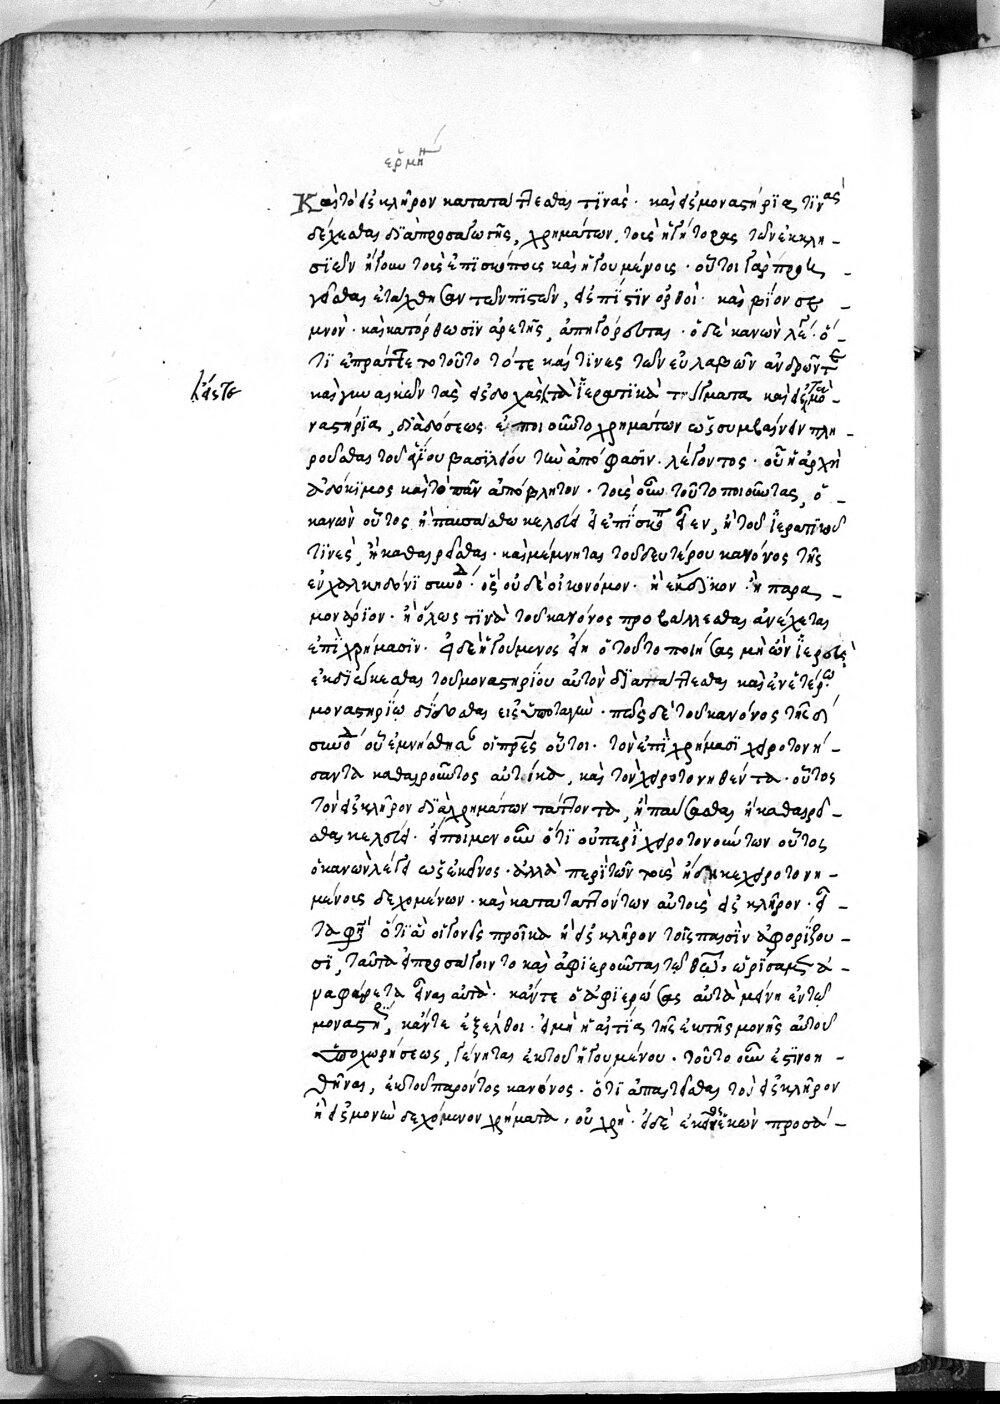 ερμη
Καὶ τὸ εἰς κλῆρον κατατάττεσθαι τινάς· καὶ εἰς μοναστήρια τινὰς
δέχεσθαι διὰ προσαγωγῆς χρημάτων, τοῖς ἡγήτορας τῶν ἐκκλη-
σιῶν ἤγουν τοῖς ἐπισκόποις καὶ ἡγουμένοις· οὗτοι γὰρ
ἐτάχθησαν τῶν πιστῶν, ἐπίστιν ὀρθοὶ· καὶ βίον σε-
μνὸν· καὶ κατόρθωσιν ἀρετῆς, ἀπηγόρευται· ὁ δὲ κανὼν λέγει ὅ-
τι ἐπράττετο τοῦτο τότε καί τινες τῶν εὐλαβῶν ἀνδρῶν τὲ
καὶ γυναικῶν τὰς εἰσδοχὰς τὰ ἱερατικὰ τάγματα καὶ εἰς τὰ μο-
ναστήρια, διαδόσεως ἐποιοῦντο χρημάτων ὡς συμβαίνειν πλη-
ροῦσθαι τοῦ ἁγίου βασιλείου τὴν ἀπόφασιν λέγοντος· οὗ ἡ ἀρχὴ
ἀδόκιμος καὶ τὸ πᾶν ἀπόβλητον· τοὺς οὖν τοῦτο ποιοῦντας, ὁ
κανὼν οὗτος ἢ παύσασθαι κελεύει εἰ ἐπίσκοποι εἶεν, ἢ τοῦ ἱερατικοῦ
τινές, ἢ καθαιρεῖσθαι· καὶ μέμνηται τοῦ δευτέρου κανόνος τῆς
ἐν χαλκηδόνι συνόδου· ὃς οὐδὲ οἰκονόμον· ἢ ἔκδικον· ἢ παρα-
μονάριον· ἢ ὅλως τινὰ τοῦ κανόνος προβάλλεσθαι ἀνέχεται
ἐπὶ χρήμασιν· εἰ δὲ ἡγούμενος εἴη ὁ τοῦτο ποιήσας μὴ ὢν ἱερεὺς
ἐκδιώκεσθαι τοῦ μοναστηρίου αὐτὸν διατάττεσθαι καὶ ἐν ἑτέρῳ
μοναστηρίῳ δίδοσθαι εἰς ὑποταγὴν· πῶς δὲ τοῦ κανόνος τῆς δ΄
συνόδου ἐμνήσθησαν οἱ πρες οὗτοι· τὸν ἐπὶ χρήμασι χειροτονή-
σαντα καθαιροῦντος αὐτίκα, καὶ τὸν χειροτονηθέντα· οὗτος
τὸν εἰς κλῆρον διὰ χρημάτων τάττοντα, ἢ παύσασθαι ἢ καθαιρεῖ-
σθαι κελεύει· εἴποιμεν οὖν ὅτι οὐ περὶ χειροτονούντων οὗτος
ὁ κανὼν λέγει ὡς ἐκεῖνος· ἀλλὰ περὶ τῶν τοὺς ἤδη κεχειροτονη-
μένοις δεχομένων· καὶ κατατατόντων αὐτοὺς εἰς κλῆρον· εἶ-
τα φησὶ ὅτι ἃ οἱ γονεῖς προῖκα ἢ εἰς κλῆρον τοῖς παισὶν ἀφορίζου-
σι, ταῦτα εἰ προσάγοιντο καὶ ἀφιεροῦνται τῷ θεῷ, ὡρίσαμεν ἀ-
ναφαίρετα εἶναι αὐτὰ· κἄντε ὁ ἀφιερώσας αὐτὰ μένῃ ἐν τῷ
μοναστηρίῳ, κἄντε ἐξέλθοι· εἰ μὴ ἡ αἰτία τῆς ἐκ τῆς μονῆς αὐτοῦ
ὑποχωρήσεως, γένηται ἐκ τοῦ ἡγουμένου· τοῦτο οὖν ἔστι νοη-
θῆναι, ἐκ τοῦ παρόντος κανόνος· ὅτι ἀπαιτεῖσθαι τὸν εἰς κλῆρον
ἢ εἰς μονὴν δεχόμενον χρήματα, οὐ χρὴ· εἰ δὲ ἑκὼν προσά-